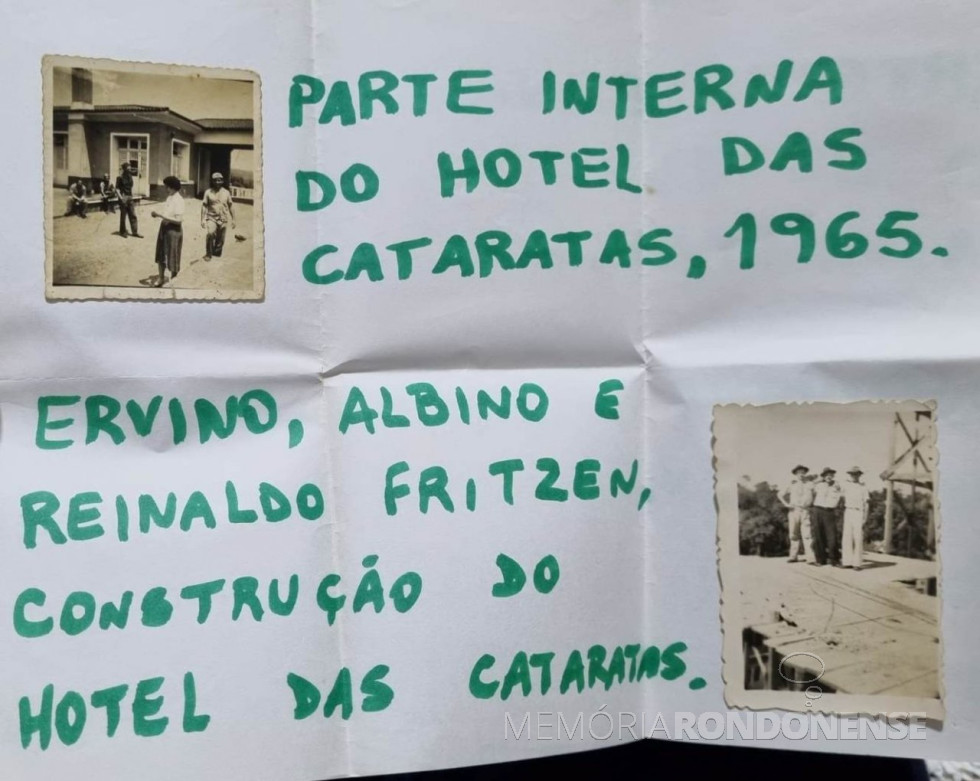 PARTE INTERNA
DO HOTEL DAS
CATARATAS, 1965.
ERVINO, ALBINO E
REINALDO FRITZEN,
CONSTRUÇÃO DO
HOTEL DAS CATARATAS.
MEMÓRIARONDONENSE